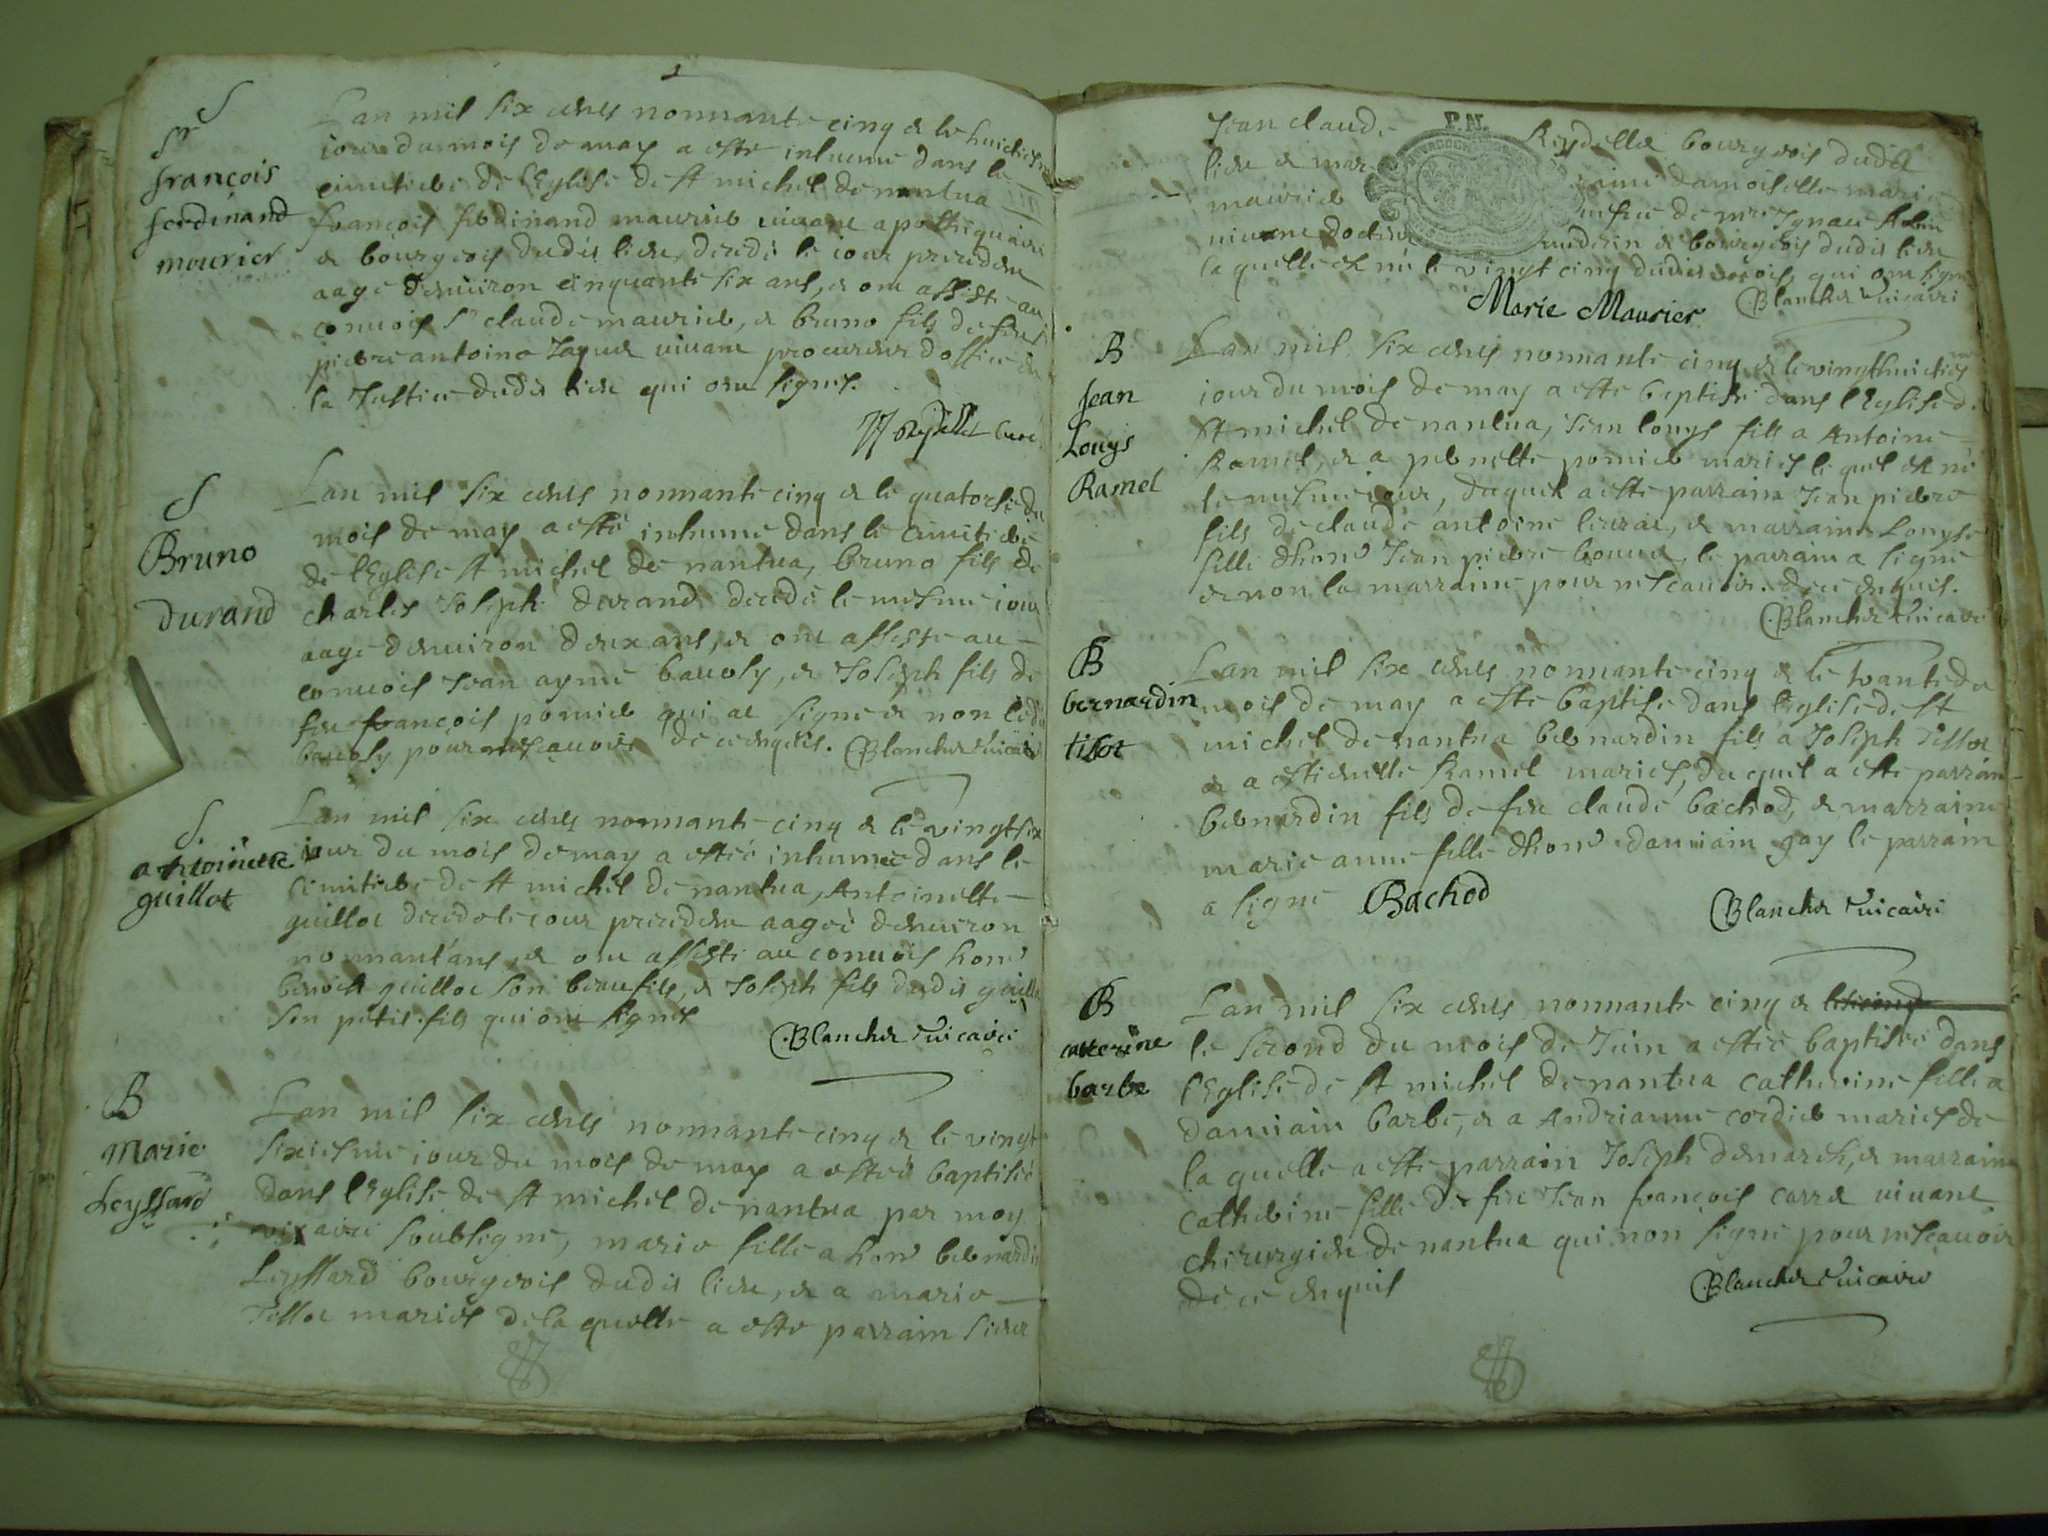 S
Sr
françois
ferdinand
mourier
Lan mil six cents nonnante cinq & le huictiesme
iour du mois de may a este inhume dans le
cimitiere de l'Eglise de st michel de nantua
françois ferdinand maurier vivant apothiquaire
& bourgeois dudit lieu, decede le iour precedent
aage denviron cinquante six ans, & ont assiste au
convois Sr claude maurier, & bruno fils de feu
pierre antoine Jaquet vivant procureur doffice en
la Justice dudit lieu qui ont signes.
curé
S
Bruno
Durand
Lan mil six cents nonnante cinq & le quatorse du
mois de may a esté inhume dans le cimitiere
de l'Eglise st michel de nantua, bruno fils de
charles Joseph durand decede le mesme iour
aage denviron deux ans, & ont assiste au
convois Jean ayme bauoly, & Joseph fils de
feu françois pomier qui at signe & non ledit
bauoly pour ne sçauoir de ce enquis. Blanchet vicaire
S.
antoinette
guillot
Lan mil six cents nonnante cinq & le vingt six
iour du mois de may a esteé inhumeé dans le
cimitiere de st michel de nantua, Antoinette
guillot decede le iour precedent aageé denviron
nonnant'ans, & ont assisté au convois hon
benoit guillot son beaufils, & Joseph fils dudit guillot
son petit fils qui ont signés
Blanchet vicaire
B
Marie
Leyssard
Lan mil six cents nonnante cinq & le vingt
sixiesme iour du mois de may a esteé baptiseé
dans l'Eglise de st michel de nantua par moy
vicaire soubsigne, marie fille a hon bernardin
Leyssard bourgeois dudit lieu, & a marie
Tissot mariés de la quelle a este parrain sieur
Jean claude Reydellet bourgeois dudit
lieu & mar raine damoiselle marie
maurier de feu de mre Ignace
vivant docteur medecin & bourgeois dudit lieu
la quelle est né le vingt cinq dudit mois, qui ont signe
Marie Maurier Blanchet vicaire
B
Jean
Louys
Ramel
Lan mil six cents nonnante cinq & le vingthuictiesme
iour du mois de may a este baptise dans l'Eglise de
st michel de nantua, Jean louys fils a Antoine
Ramel, & a pernette pomier mariés le quel est né
le mesme iour, duquel a este parrain Jean pierre
fils de claude antoine leurat, & marraine Louyse
fille dhon Jean pierre bouuet, le parrain a signe
& non la marraine pour ne sçauoir. de ce enquis.
Blanchet vicaire
B
bernardin
tisot
Lan mil six cents nonnante cinq & le trante du
mois de may a este baptise dans l'eglise de st
michel de nantua bernardin fils a Joseph Tissot
& a estiennette Ramel mariés, du quel a este parrain
bernardin fils de feu claude bachod, & marraine
marie anne fille dhon damiain gay le parrain
a signe Bachod Blanchet vicaire
B
catterine
barbe
Lan mil six cents nonnante cinq &
le second du mois de Juin a esteé baptiseé dans
l'Eglise de st michel de nantua catherine fille a
damiain barbe, & a Andrianne cordier mariés de
la quelle a este parrain Joseph demarest, & marraine
catherine fille de feu Jean françois carra vivant
chirurgien de nantua qui non signe pour ne sçauoir
de ce enquis Blanchet vicaire
P.N.